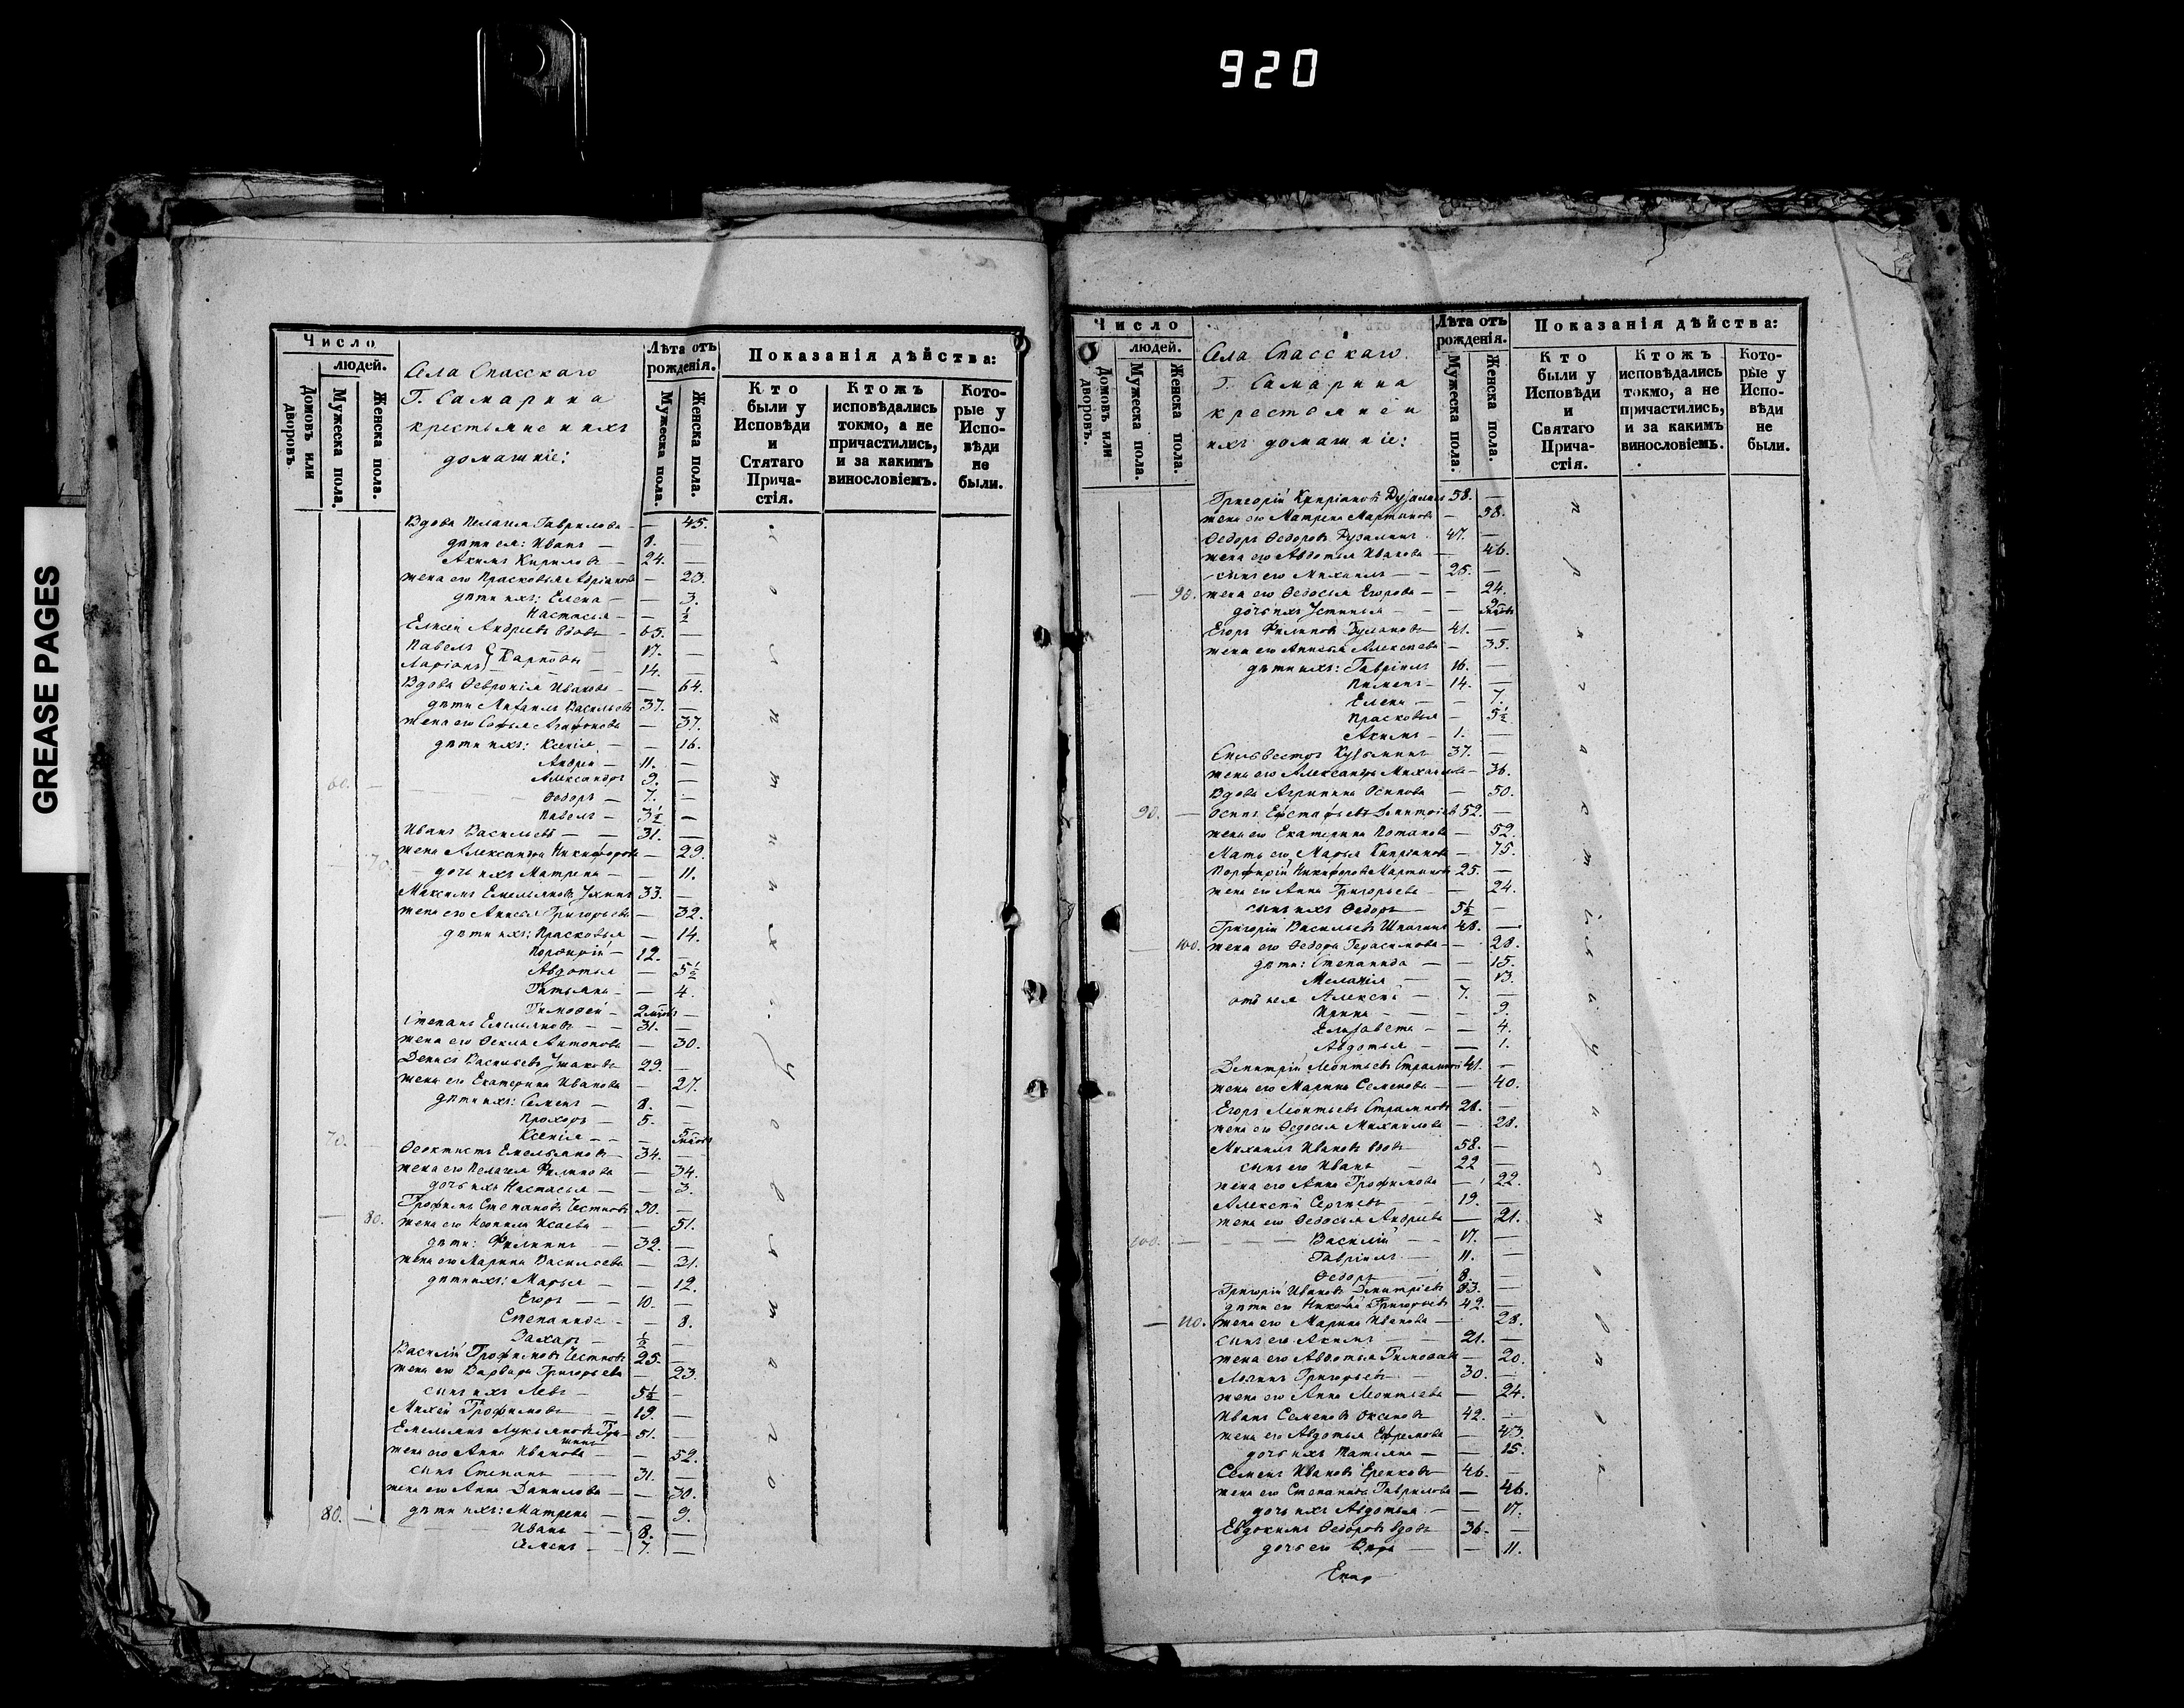 920
GREASE PAGES
Число
людей.
Домовъ или дворовъ.
Мужеска пола.
Женска пола.
Села Спасскаго
Г. Самарина
крестьяне и ихъ
домашніе:
Лѣта отъ рожденія.
Мужеска пола.
Женска пола.
Показанія дѣйства:
Кто были у Исповѣди и Стятаго Прича-стія.
Ктожъ исповѣдались токмо, а не причастились, и за какимъ винословіемъ.
Кото-рые у Испо-вѣди не были.
Вдова Пелагея Гаврилова — — 45.
дѣти ея: Иванъ — 8. —
Акимъ Кириловъ — 24. —
жена его Прасковья Адріанова — 23.
дѣти ихъ: Елена — — 3.
Настасья — — ½
Елисей Андреевъ вдовъ — 65. —
Павелъ 17. —
Ларіонъ } Карповы 14. —
Вдова Февронія Иванова — — 64.
дѣти Михаилъ Васильевъ 37. —
жена его Софья Агафонова — 37.
дѣти ихъ: Ксенія — — 16.
Андрей — 11. —
Александръ 9. —
60. — Федоръ — 7. —
Павелъ — 3½ —
Иванъ Васильевъ — — 31. —
— 70. жена Александра Никифорова — 29.
дочь ихъ Матрена — — 11.
Максимъ Емельяновъ 33. —
жена его Анисья Григорьева — 32.
дѣти ихъ: Прасковья — 14.
Порфирій — 12. —
Авдотья — 5½
Татьяна — — 4.
Тимофей — 2 мѣсяц —
Степанъ Емельяновъ — — 31. —
жена его Фекла Антонова — 30.
Денисъ Васильевъ Ушаковъ 29. —
жена его Екатерина Иванова — 27.
дѣти ихъ: Семенъ — 8. —
Прохоръ — 5. —
70. — Ксенія — — — 5
Феоктистъ Емельяновъ — 34. —
жена его Пелагея Филипова — 34.
дочь ихъ Настасья — — 3.
Трофимъ Степановъ 50. —
— 80. жена его Неонила Исаева — — 51.
дѣти: Филипъ — 32. —
жена его Марина Васильева — 31.
дѣти ихъ: Марья — — 12.
Егоръ — — 10. —
Степанида — — 8.
Захаръ — ½ —
Василій Трофимовъ 25. —
жена его Варвара Григорьева — 23.
сынъ ихъ Левъ — 5½ —
Михей Трофимовъ — 19. —
Емельянъ Лукьяновъ 51. —
жена его Анна Иванова — — 52.
сынъ Степанъ — 31. —
жена его Анна Данилова — — 30.
80. — дѣти ихъ: Матрена — — 9.
Иванъ — 8. —
Семенъ — — 7. —
Число
людей.
Домовъ или дворовъ.
Мужеска пола.
Женска пола.
Села Спасскаго.
Г. Самарина
крестьяне и
ихъ домашніе:
Лѣта отъ рожденія.
Мужеска пола.
Женска пола.
Показанія дѣйства:
Кто были у Исповѣди и Святаго Прича-стія.
Ктожъ исповѣдались токмо, а не причастились, и за какимъ винословіемъ.
Кото-рые у Испо-вѣди не были.
Григорій Кипріановъ 58. —
жена его Матрена Мартинова — 58.
Федоръ Федоровъ 47. —
жена его Авдотья Иванова — 46.
сынъ его Михаилъ — — 25. —
— 90. жена его Федосья Егорова — — 24.
дочь ихъ Устинья — — 2
Егоръ Филиповъ 41. —
жена его Анисья Алексеева — 35.
дѣти ихъ: Гавріилъ 16. —
Пименъ — 14. —
Елена — — 7.
Прасковья — 5½
Акимъ — 1. —
Сильвестръ Кузьминъ 37. —
жена его Александра Михайлова — 36.
Вдова Агрипина Осипова — 50.
90. — Осипъ Евстафьевъ Дмитріевъ 52. —
жена его Екатерина Потапова — 52.
Мать его, Марья Кипріанова — 75.
Порфирій Никифоровъ Мартиновъ 25. —
жена его Анна Григорьева — — 24.
сынъ ихъ Федоръ — 5½ —
Григорій Васильевъ 48. —
— 100. жена его Федора Герасимова — — 28.
дѣти: Степанида — — 15.
Меланія — — 13.
отъ нея Алексей — 7. —
Ирина — — — 9.
Елизавета — — 4.
Авдотья — — 1.
Димитрій Леонтьевъ 41. —
жена его Марина Семенова — — 40.
Егоръ Леонтьевъ 28. —
жена его Федосья Михаилова — 28.
Михаилъ Ивановъ вдовъ 58. —
сынъ его Иванъ — 22 —
жена его Анна Трофимова — 22.
Алексѣй Сергѣевъ — 19. —
жена его Федосья Андреева — 21.
100. — Василій — — 17. —
Гавріилъ — 11. —
Федоръ — 8. —
Григорій Ивановъ Димитріевъ 83. —
дѣти его Николай Григорьевъ 42. —
— 110. жена его Марина Иванова — 28.
сынъ его Акимъ — — 21. —
жена его Авдотья Тимофеева — 20.
Логинъ Григорьевъ — 30. —
жена его Анна Леонтьева — 24.
Иванъ Семеновъ Оксеновъ 42. —
жена его Авдотья Ефремова — 43.
дочь ихъ Татьяна — — 15.
Семенъ Ивановъ Еренковъ 46. —
жена его Степанида Гаврилова — 46.
дочь ихъ Авдотья — — 17.
Евдокимъ Федоровъ вдовъ 36. —
дочь его Вѣра — — 11.